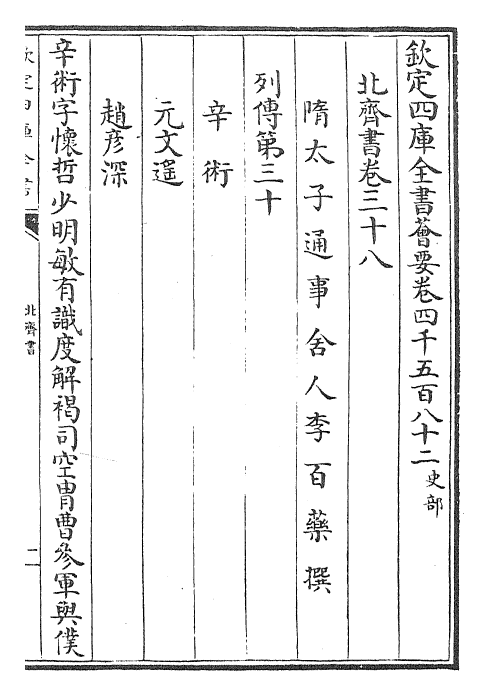 欽定四庫全書薈要卷四千五百八十二 史部
北齊書卷三十八
隋太子通事舍人李百藥撰
列傳第三十
辛術
元文遙
趙彦深
辛術字懷哲少明敏有識度解褐司空胄曹參軍與僕
欽定四庫全書
北齊書